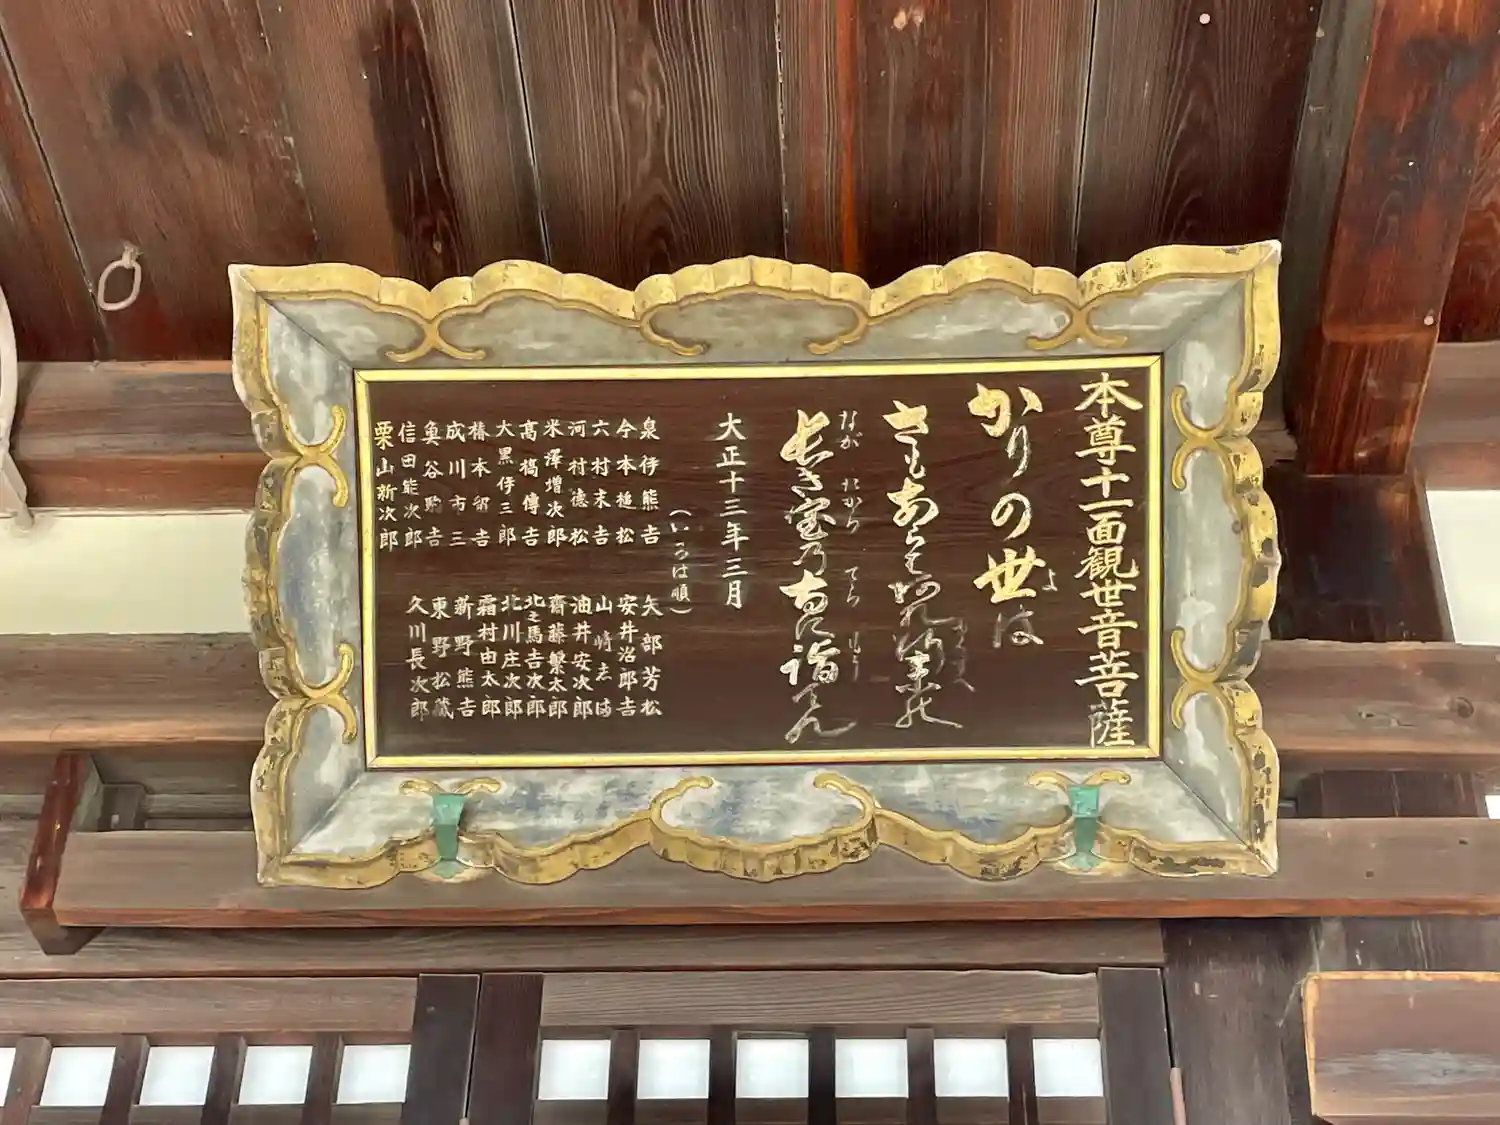 本尊十一面観世音菩薩
かりの世は
よ
さもあらば
長き宝の寺に詣でん
なが たから てら もう
大正十三年三月
(いろは順)
泉伊熊吉
今本槌松
六村末吉
河村徳松
米澤増次郎
髙槗傳吉
大黒伊三郎
椿本留吉
成川市三
奥谷駒吉
信田能次郎
栗山新次郎
矢部芳松
安井治郎吉
山崎志満
油井安次郎
齋藤繁太郎
北之馬吉次郎
北川庄次郎
霜村由太郎
新野熊吉
東野松蔵
久川長次郎